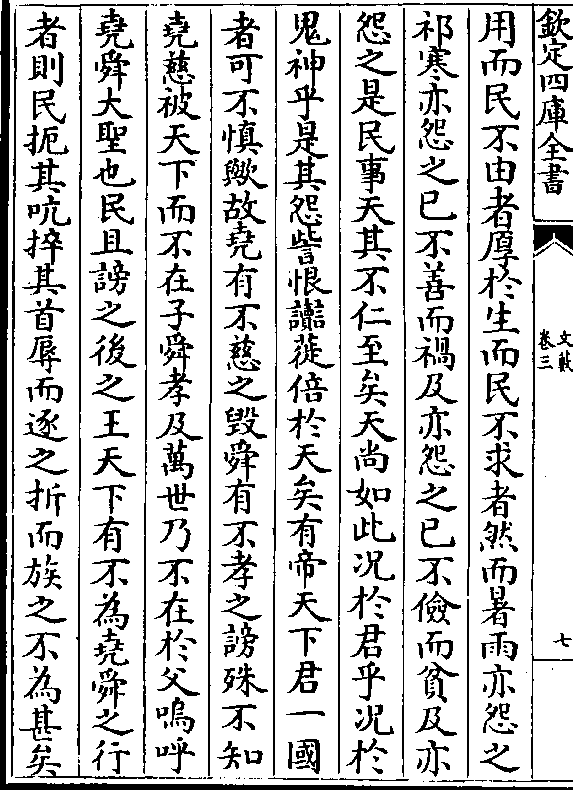 欽定四庫全書
文藪
卷三
七
用而民不由者厚於生而民不求者然而暑雨亦怨之
祁寒亦怨之已不善而禍及亦怨之已不儉而貧及亦
怨之是民事天其不仁至矣天尚如此况於君乎况於
鬼神乎是其怨訾恨讟蓰倍於天矣有帝天下君一國
者可不慎歟故堯有不慈之毀舜有不孝之謗殊不知
堯慈被天下而不在子舜孝及萬世乃不在於父嗚呼
堯舜大聖也民且謗之後之王天下有不為堯舜之行
者則民扼其吭捽其首辱而逐之折而族之不為甚矣